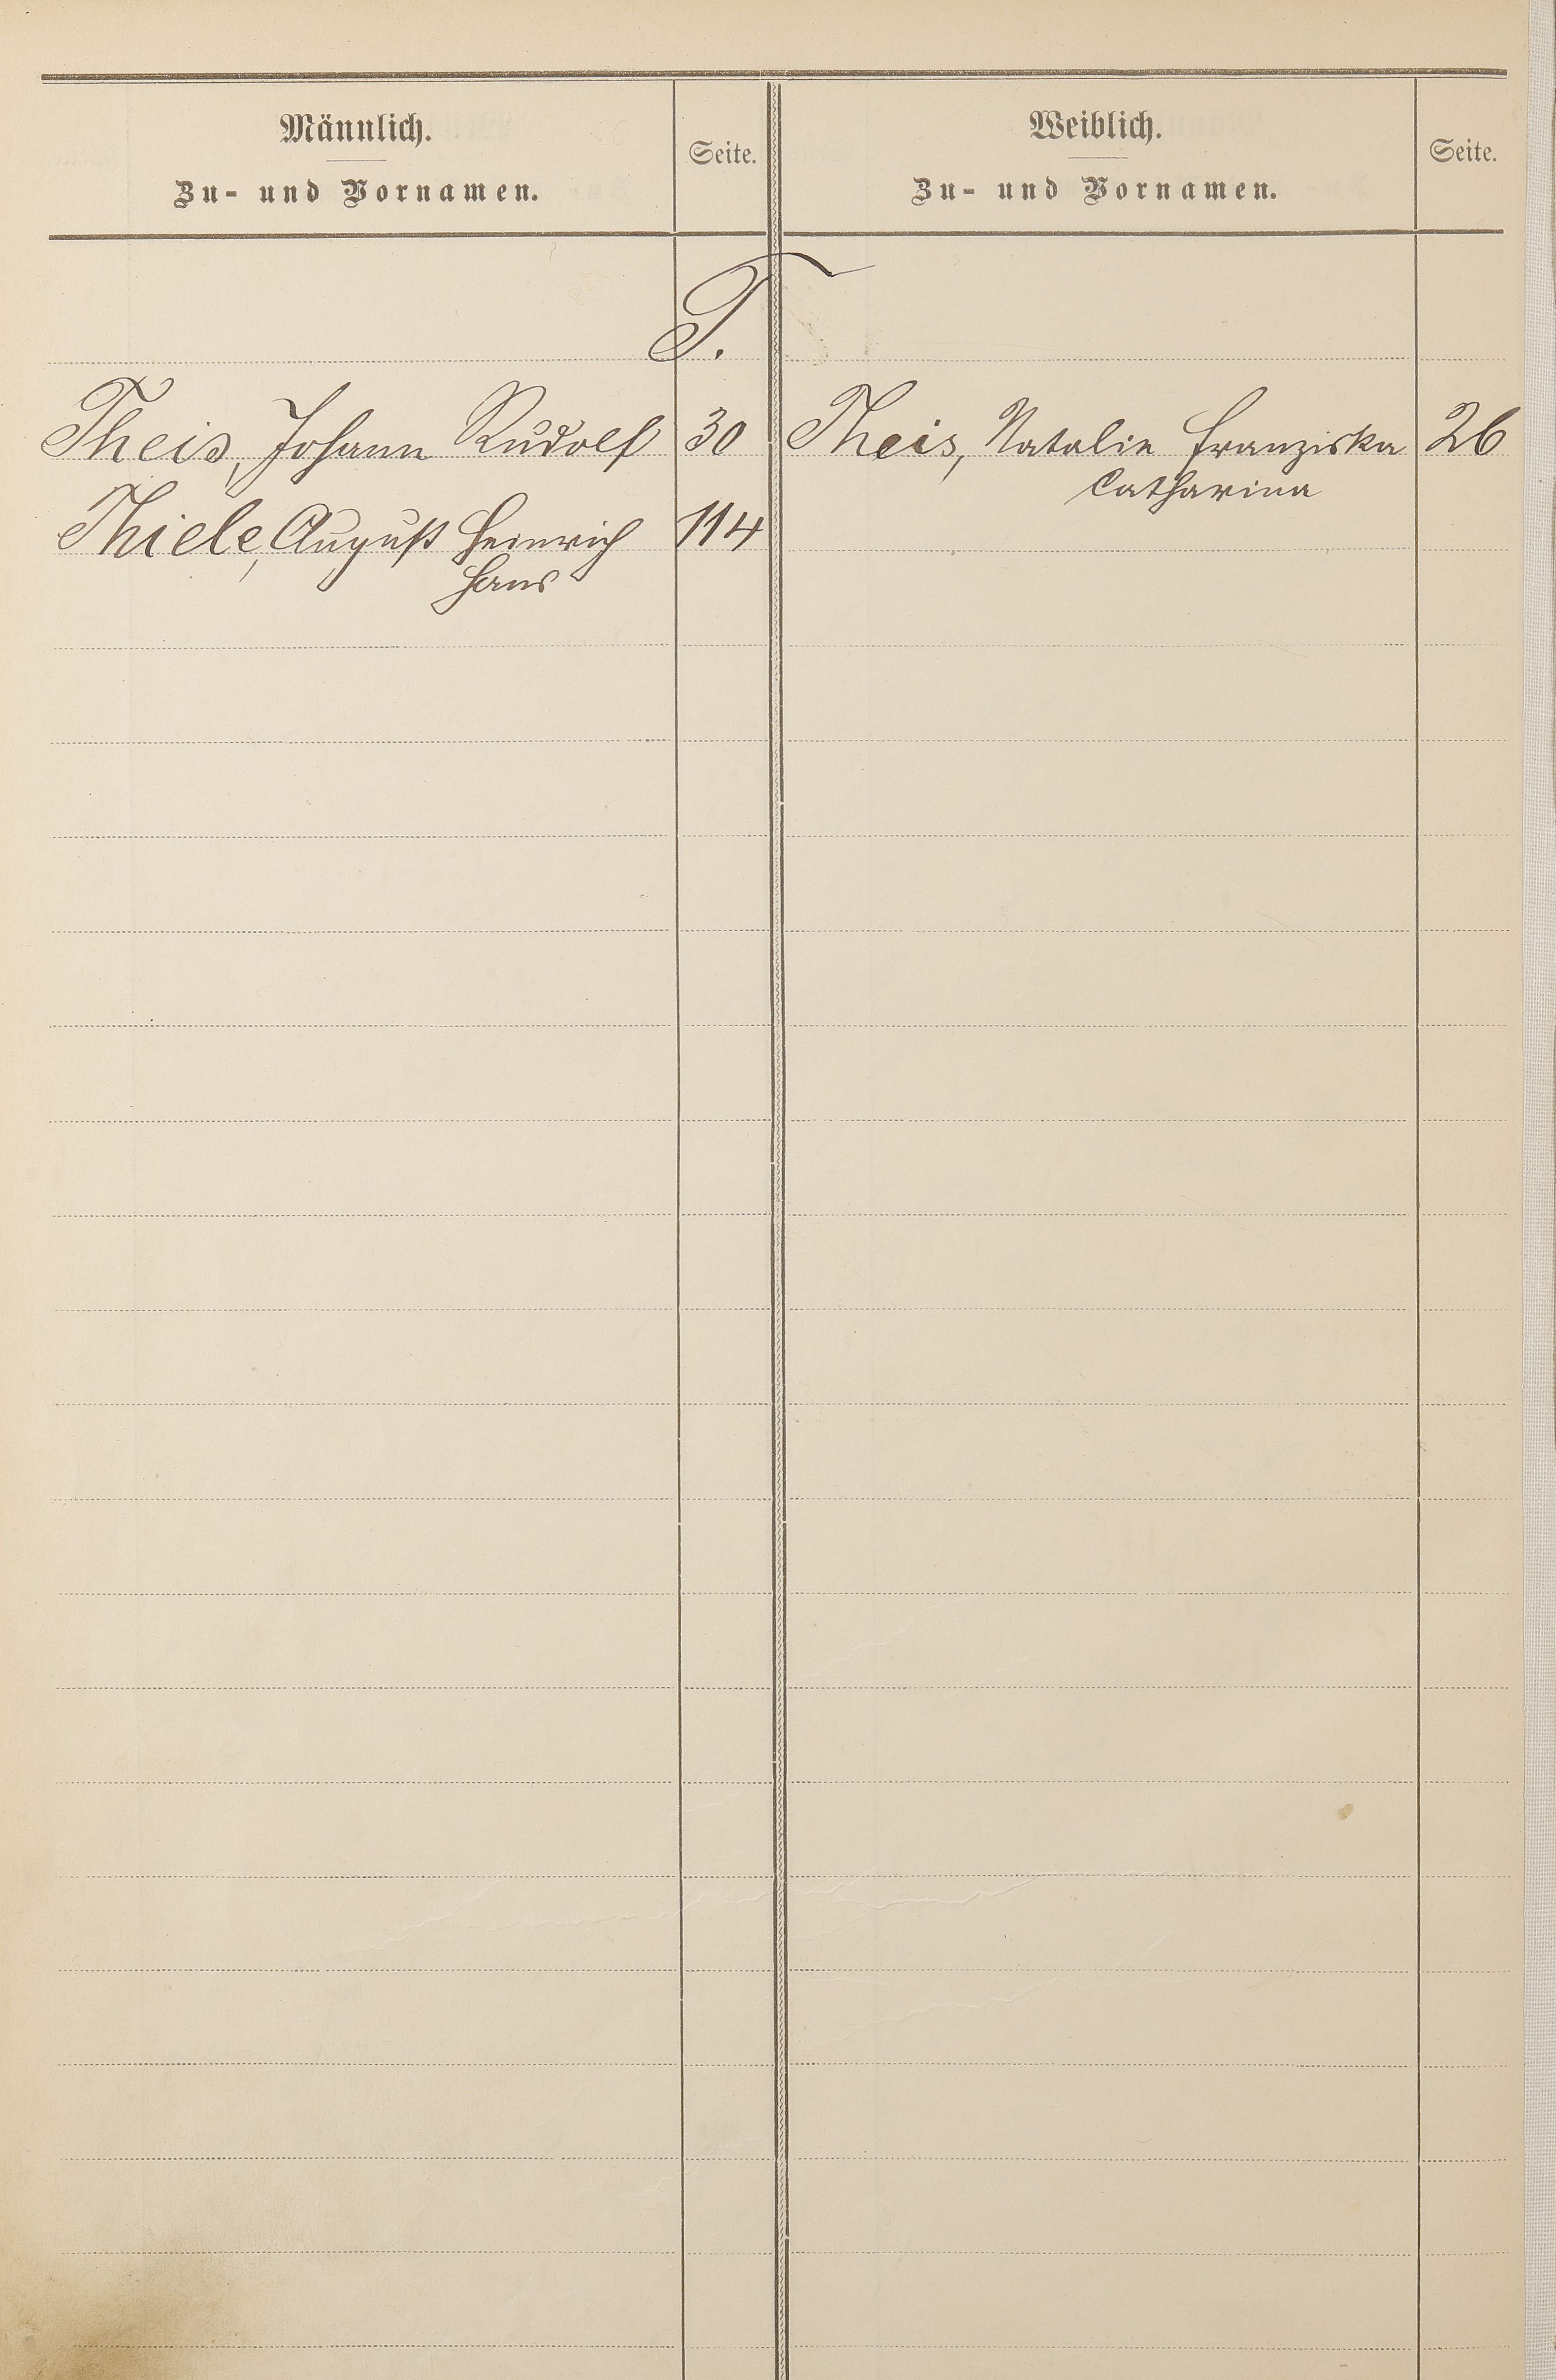 Männlich.
Zu- und Vornamen.
Seite.
Weiblich.
Zu- und Vornamen.
Seite.
T.
Theis, Johann Rudolf 30
Theis, Natalie Franziska 26
Catharina
Thiele, August Heinrich 114
Hans